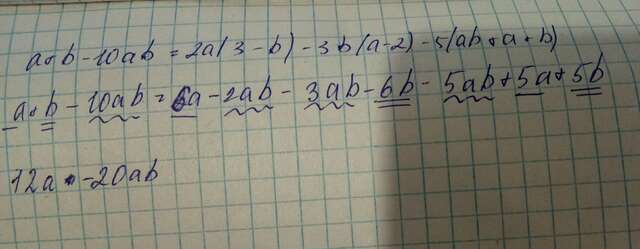 a+b-10ab = 2a(3-b)-3b(a-2)-5(ab+a+b)
a+b-10ab = 6a-2ab-3ab-6b-5ab+5a+5b
12a - -20ab